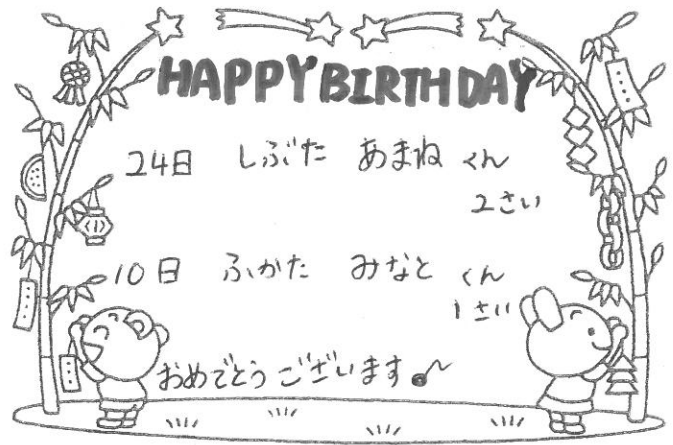 HAPPY BIRTHDAY
24日 しぶた あまね くん
2さい
10日 ふかた みなと くん
1さい
おめでとうございます♪